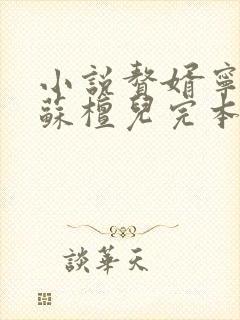 小説贅婿寧
蘇檀兒完本
談華天